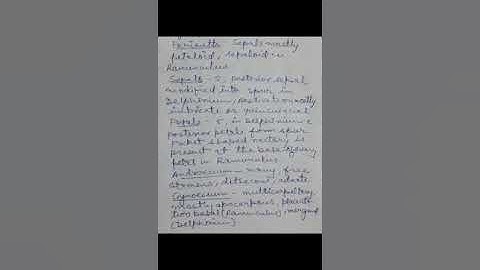 Perianth - Sepals mostly
petaloid, sepaloid in
Ranunculus
Sepals - 5, posterior sepal
modified into spur in
Delphinium, aestivation mostly
imbricate or quincuncial
Petals - 5, in Delphinium 2
posterior petals form spur
Pocket shaped nectary is
present at the base of every
petal in Ranunculus.
Androecium - many, free
stamens, dithecous, adnate
Gynoecium - multicarpellary,
mostly apocarpous, placenta
tion basal (Ranunculus), marginal
(Delphinium)